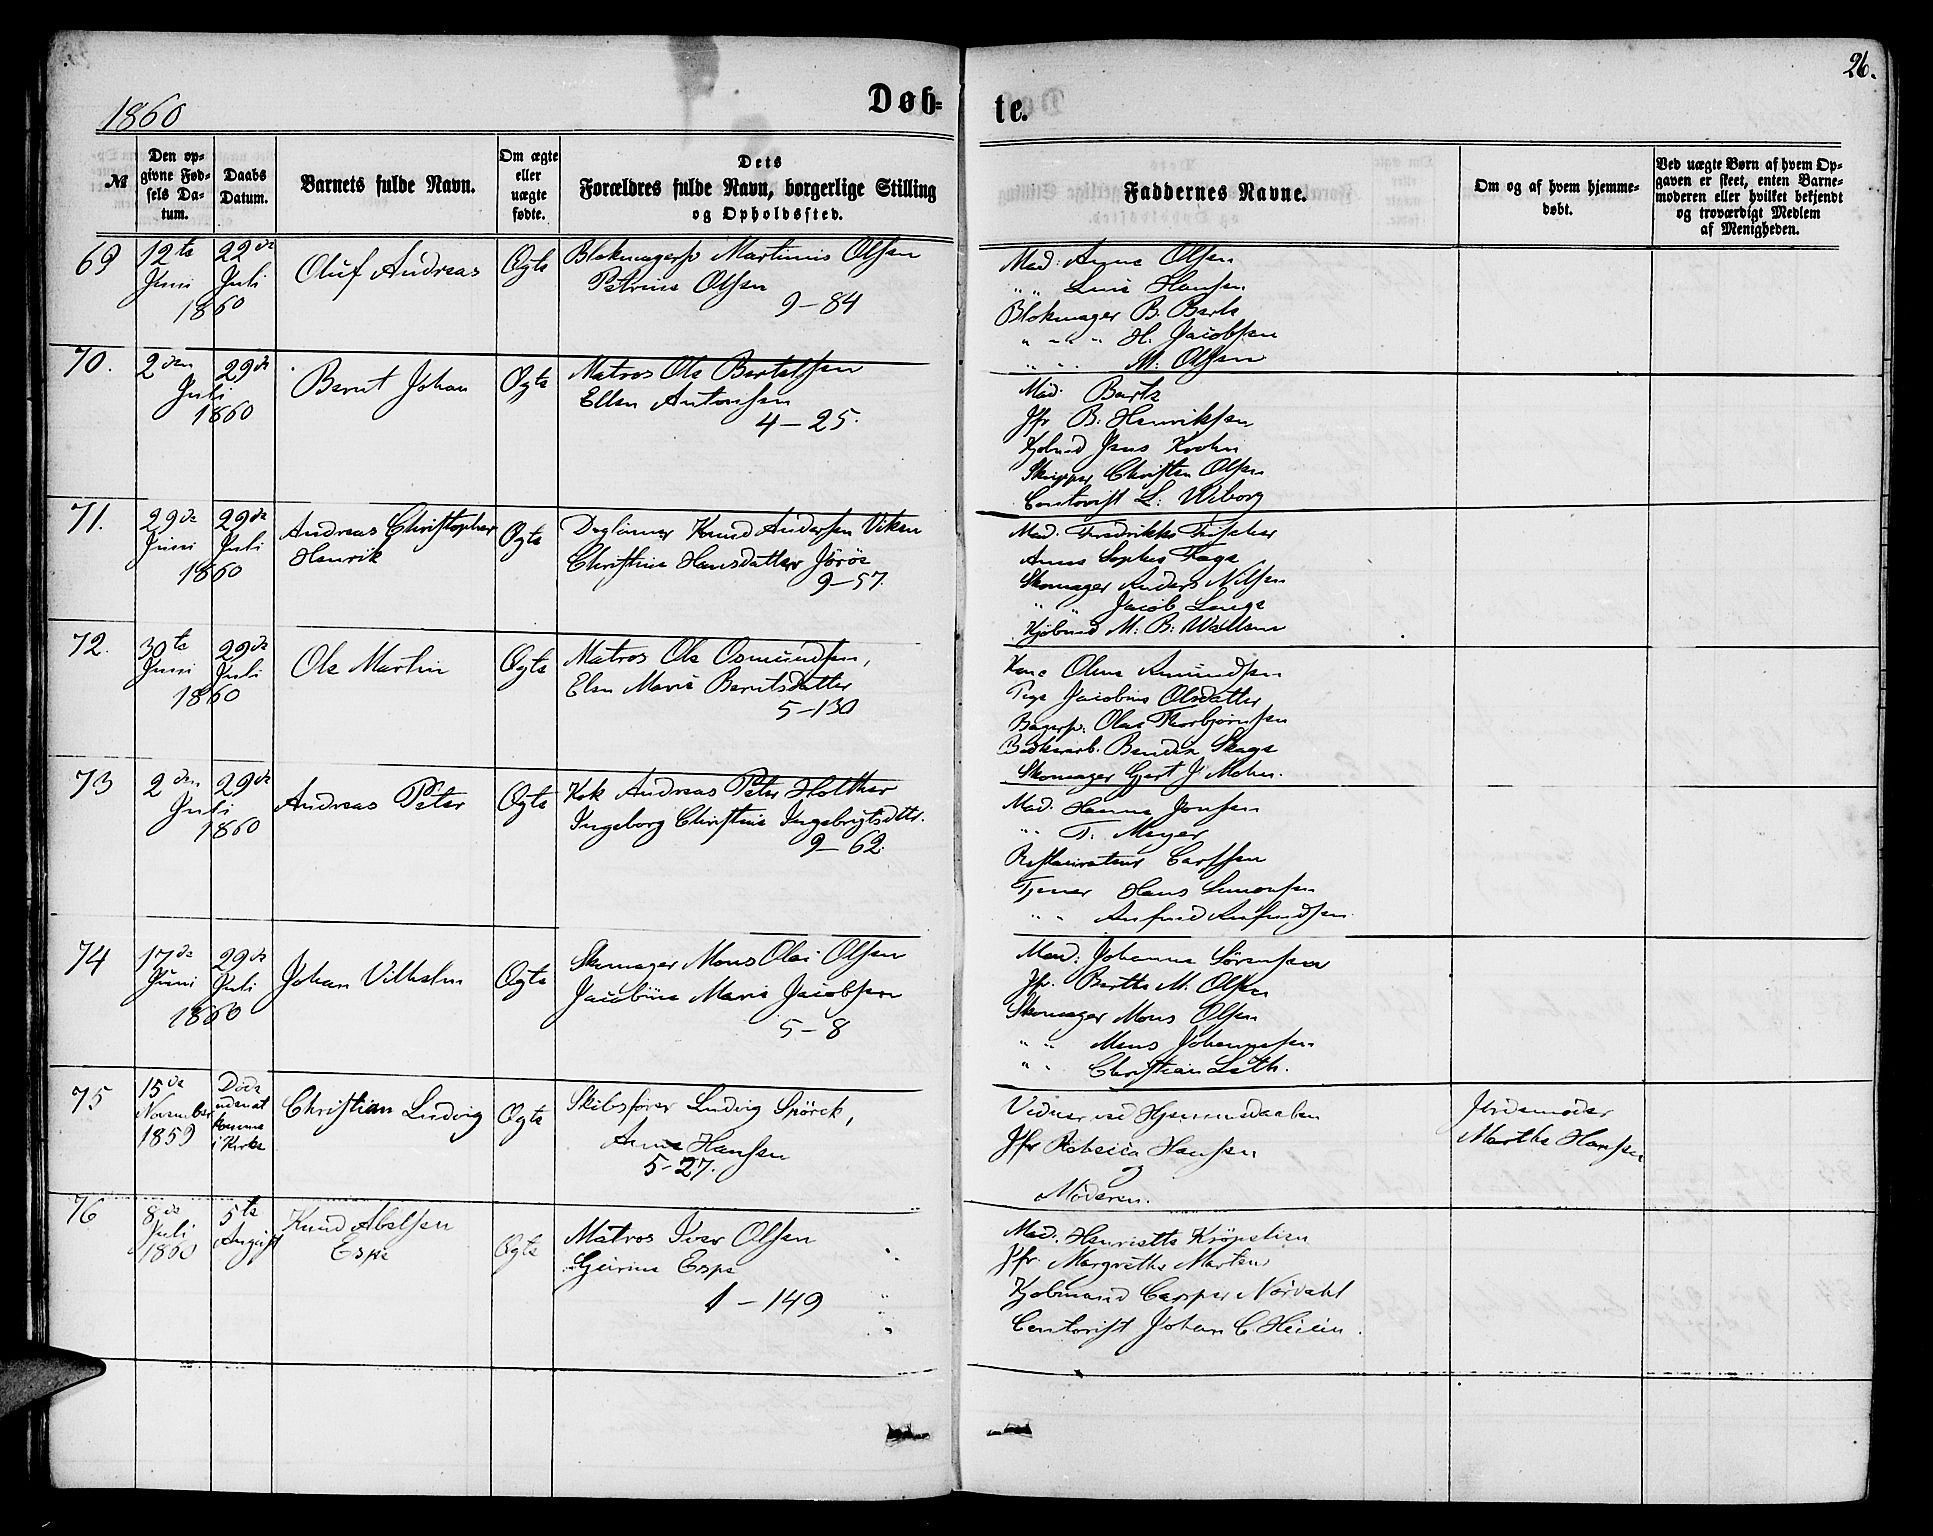 26.
1860
Døb-
te.
№
Den op-
givne Fød-
sels Da-
tum.
Daabs
Datum.
Barnets fulde Navn.
Om ægte
eller
uægte
fødte.
Dets
Forældres fulde Navn, borgerlige Stilling
og Opholdssted.
Faddernes Navne.
Om og af hvem hjemme-
døbt.
Ved uægte Børn af hvem Op-
gaven er skeet, enten Barne-
moderen eller hvilket bekjendt
og troværdigt Medlem
af Menigheden.
69
12te
Juni
22de
Juli
1860
Oluf Andreas
Ægte
Blokmagersv Martinus Olsen
Petrine Olsen
9-84
Mad: Anna Olsen
" " Lina Hansen
Blokmager B. Bartz
" " " H. Jacobsen
" " M. Olsen
70.
2den
29de
Juli
1860
Bernt Johan
Ægte
Matros Ole Bertelsen
Ellen Antonsen
4-25.
Mad: Bartz
Jfr B. Henriksen
Jens
Skipper Christen Olsen
Contorist L. Wiborg
71.
29de
Juni
29de
Juli
1860
Andreas Christopher
Henrik
Ægte
Daglönner Knud Andersen Viken
Christine Hansdatter
9-57
Mad. Fredrikke Fischer
Anna Sophie
Skomager Anders Nilsen
" " Jacob Lange
Kjöbmd M. B.
72.
30te
Juni
29de
Juli
1860
Ole Martin
Ægte
Matros Ole Osmundsen,
Elen Marie Berntsdatter
5-130
Kone Olena Amundsen
Pige Jacobine Olsdatter
Bagersv. Olai Thorbjörnsen
Bendix Skage
Skomager Gjert J Mohn.
73
2den
29de
Juli
1860
Andreas Peter
Ægte
Kok Andreas Peter Holther
Ingeborg Christine Ingebrigtsdttr.
9-62
Mad. Hanna Jonsen
" " T. Meyer
Restaurateur Carlsen
Tjener Hans Simonsen
" "
74
17de
Juni
29de
Juli
1860
Johan Vilhelm
Ægte
Skomager Mons Olai Olsen
Jacobine Marie Jacobsen
5-8
Mad: Johanna Sörensen
Jfr. Berthe M. Olsen
Skomager Mons Olsen
" " Mons Johannesen
" " Christian Leth.
75
15de
November
1859
Döde
uden at
komme
i Kirke
Christian Ludvig
Ægte
Skibsförer Ludvig Spörck,
Anna Hansen
5-27.
Vidner ved Hjemmedaaben
Jfr Rebecca Hansen
og
Moderen.
Jordemoder
Marthe Hansen
76
8de
Juli
1860
5te
August
Knud Abelsen
Espe
Ægte
Matros Iver Olsen
Guirine Espe
1-149
Mad. Henriette Kröpelien
Jfr. Margrethe Martens
Kjöbmand Casper Nordahl
Contorist Johan C